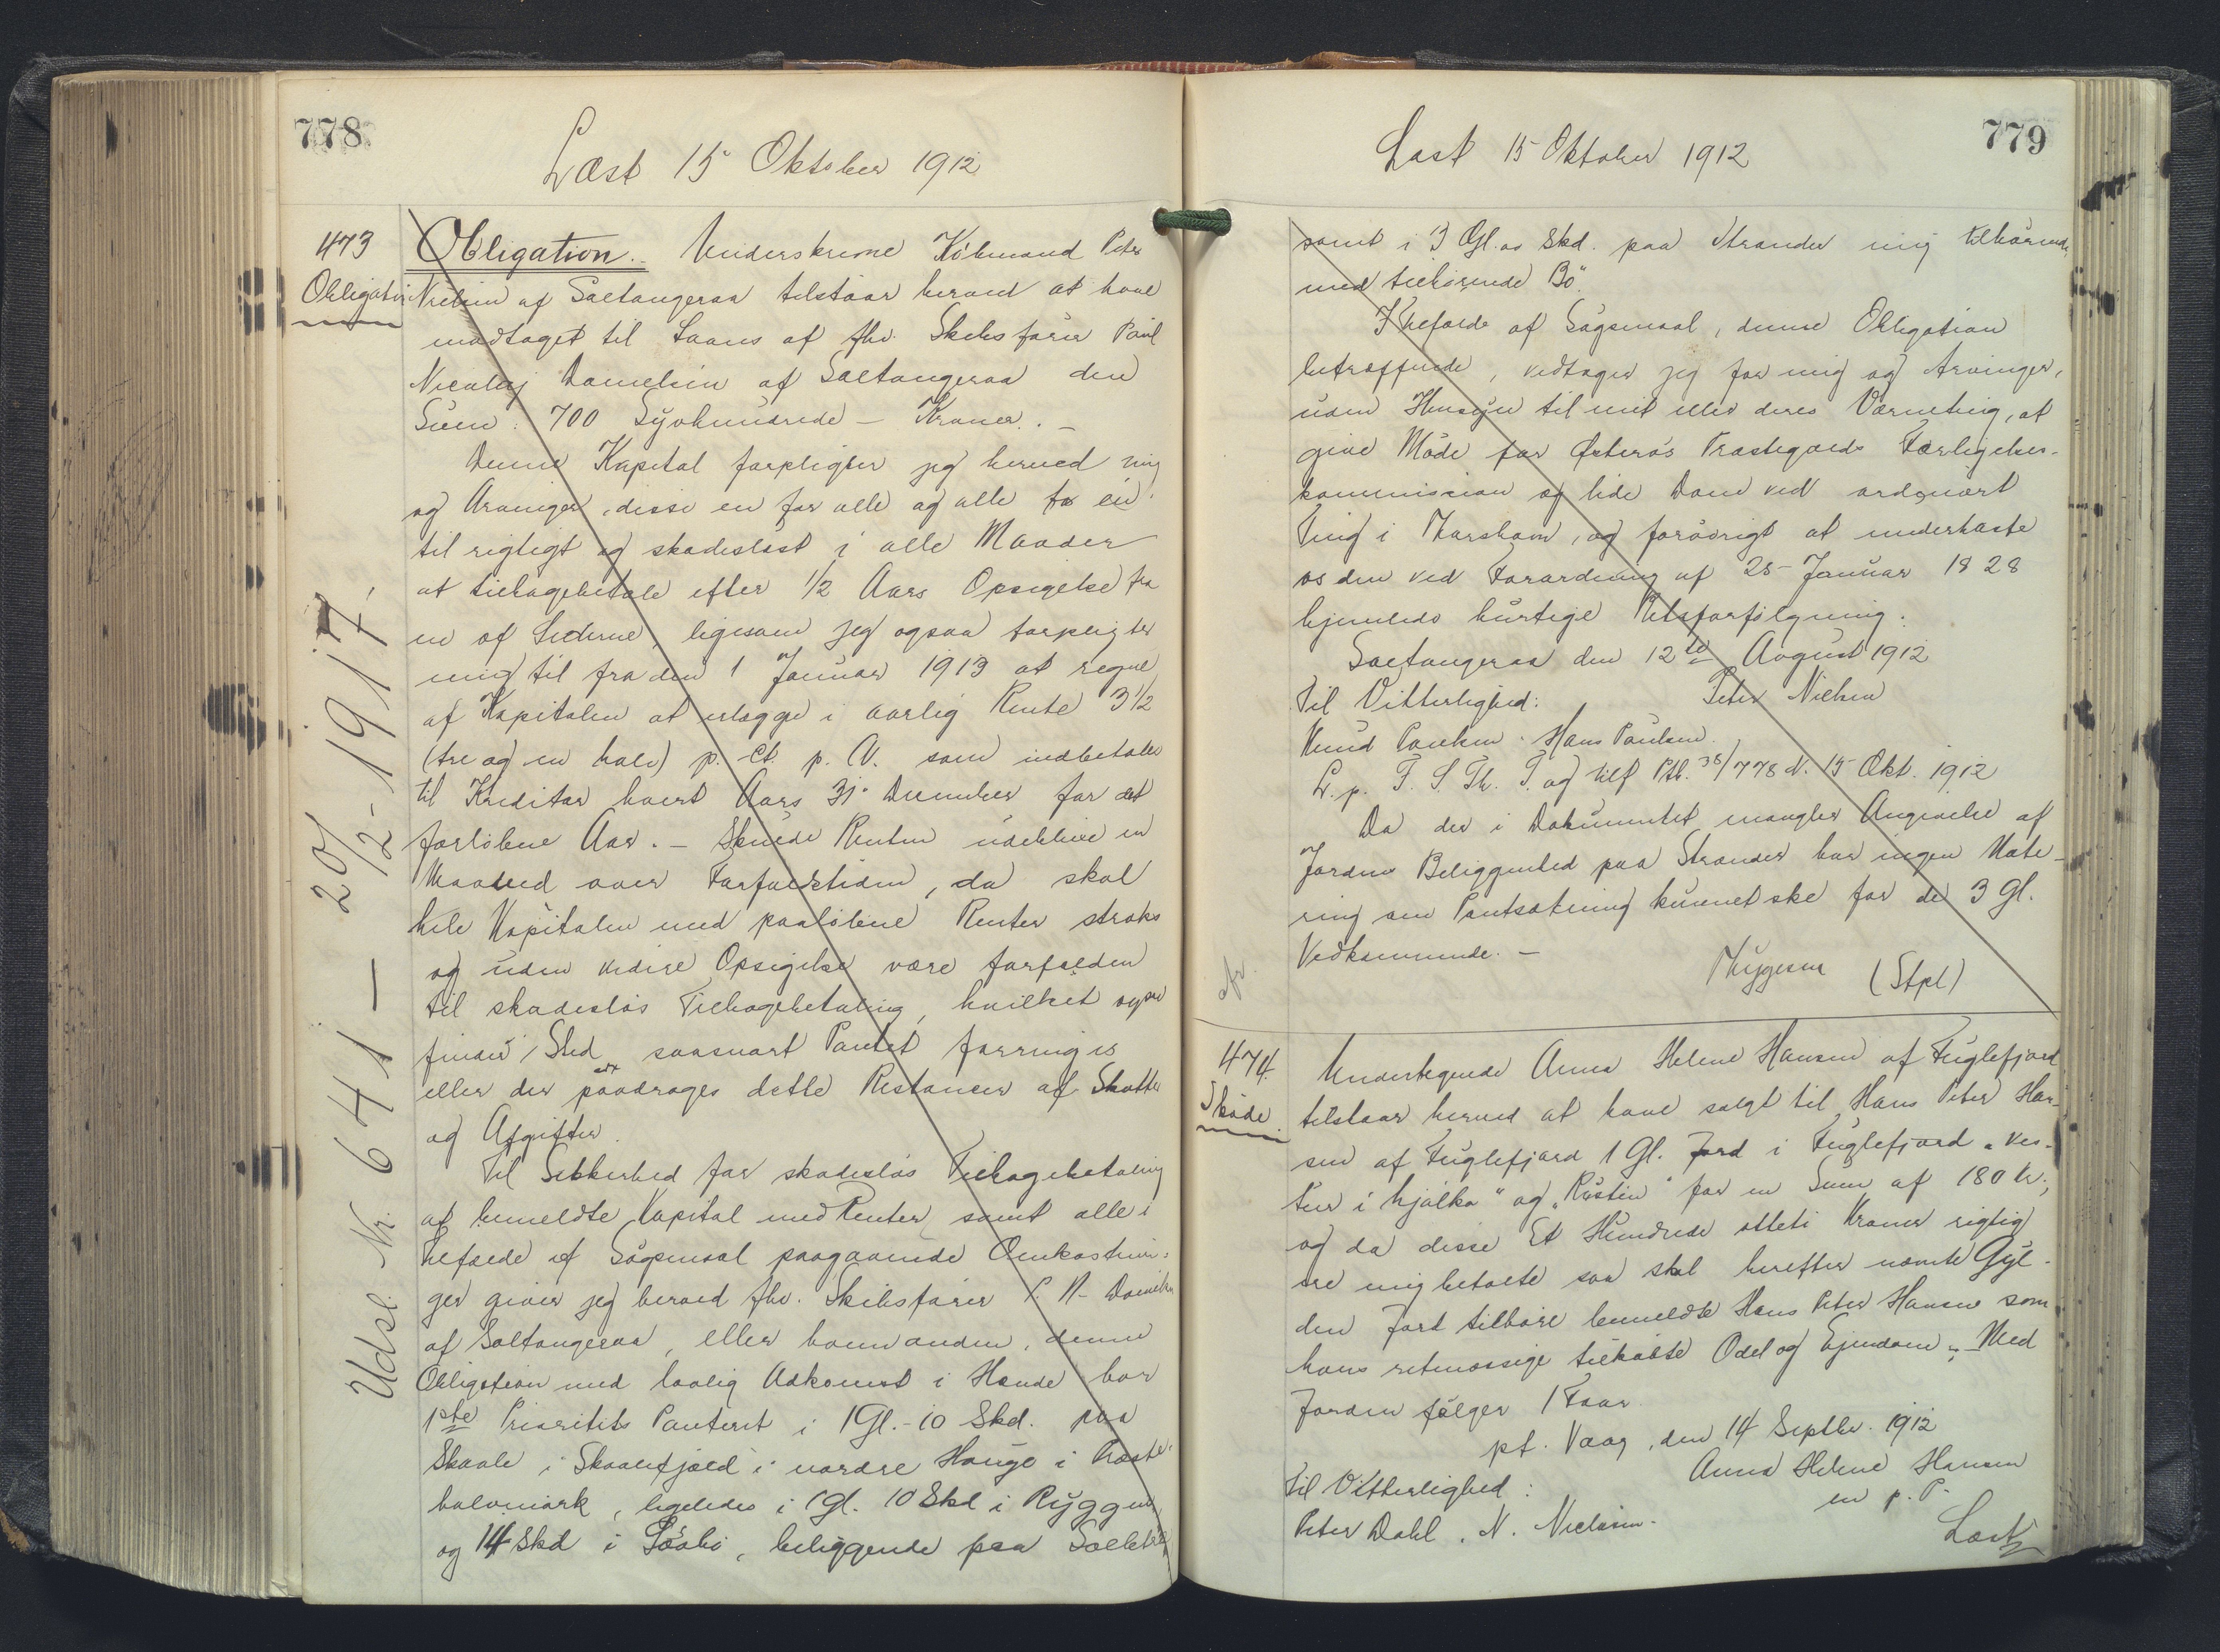 778
Læst 15 Oktober 1912
473
Obligation
Obligation. Underskrevne Købmand Peter
Nielsen af Saltangeraa tilstaar herved at have
modtaget til Laans af fhv. Skibsfører Paul
Nicolaj Danielsen af Saltangeraa den
Sum: 700 Syvhundrede – Kroner. –
Denne Kapital forpligter jeg herved mig
og Arvinger, disse en for alle og alle for én
til rigtigt og skadesløst i alle Maader
at tilbagebetale efter 1/2 Aars Opsigelse fra
en af Siderne, ligesom jeg ogsaa forpligter
mig til fra den 1 Januar 1913 at regne
af Kapitalen at erlægge i aarlig Rente 3 1/2
(tre og en halv) p. Ct. p. A. som indbetales
til Kreditor hvert Aars 31. December for det
forløbne Aar. – Skulde Renten udeblive en
Maaned over Forfaldstiden, da skal
hele Kapitalen med paaløbene Renter straks
og uden videre Opsigelse være forfalden
til skadesløs Tilbagebetaling, hvilket ogsaa
finder Sted saasnart Pantet forringes
eller der paadrages dette Restancer af Skatter
og Afgifter.
Til Sikkerhed for skadesløs Tilbagebetaling
af bemeldte Kapital med Renter samt alle i
Tilfælde af Søgsmaal paagaaende Omkostnin-
ger giver jeg herved fhv. Skibsfører P. N. Danielsen
af Saltangeraa, eller hvem anden, denne
Obligation med lovlig Adkomst i Hænde har
1ste Prioritets Panteret i 1 Gl. – 10 Skd. paa
Skaale i Skaalefjæld i nordre Hauge i Præste-
bolsmark, ligeledes i 1 Gl. 10 Skd i Ryggen
og 14 Skd i beliggende paa
Udsl. Nr. 641 – 20/12-1917.
779
Læst 15 Oktober 1912
samt i 3 Gl. Skd. paa Strander mig tilhørende
med tilhørende Bø.
I Tilfælde af Søgsmaal, denne Obligation
betræffende, vedtager jeg for mig og Arvinger,
uden Hensyn til mit eller deres Værneting, at
give Møde for Østerøs Præstegjælds Forligelses-
kommission og lide Dom ved ordinært
Ting i Thorshavn, og forøvrigt at underkaste
os den ved Forordning af 25 Januar 1828
hjemlede hurtige Retsforfølgning.
Saltangeraa den 12te August 1912
Til Vitterlighed: Peter Nielsen
Knud Poulsen. Hans Poulsen.
L. p. F. S. Th. T. og tilf Ptb. 38/778 d. 15 Okt. 1912
Da der i Dokumentet mangler Angivelse af
Jordens Beliggenhed paa Strander har ingen Note-
ring om Pantsætning kunnet ske for de 3 Gl.
Vedkommende. –
Thygesen (Stpl)
474.
Skøde.
Undertegnede Anna Helene Hansen af Fuglefjord
tilstaar herved at have solgt til Hans Peter Han-
sen af Fuglefjord 1 Gl. Jord i Fuglefjord „Ves-
tur i hjalka“ og „Rustin“ for en Sum af 180 Kr.,
og da disse Et Hundrede otteti Kroner rigtig
ere mig betalte saa skal herefter nævnte Gyl-
den Jord tilhøre bemeldte Hans Peter Hansen som
hans retmæssige tilkøbte Odel og Ejendom. – Med
Jorden følger 1 Faar.
pt. Vaag, den 14 Septbr. 1912
Anna Helene Hansen
Til Vitterlighed: m p. P.
Peter Dahl. N. Niclasen.
Læst